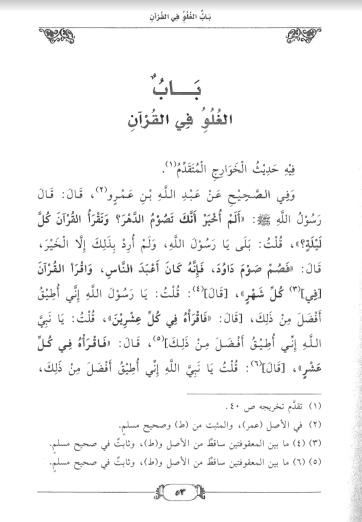 بَابُ الغُلُوِّ فِي القُرْآنِ
بَـــابُ
الغُلُوِّ فِي القُرْآنِ
فِيْهِ حَدِيْثُ الخَوَارِجِ المُتَقَدِّمُ(١).
وَفِي الصَّحِيْحِ عَنْ عَبْدِ اللَّهِ بْنِ عَمْرٍو(٢)، قَالَ: قَالَ
رَسُوْلُ اللَّهِ ﷺ: «أَلَمْ أُخْبَرْ أَنَّكَ تَصُوْمُ الدَّهْرَ؟ وَتَقْرَأُ القُرْآنَ كُلَّ
لَيْلَةٍ؟»، قُلْتُ: بَلَى يَا رَسُوْلَ اللَّهِ، وَلَمْ أُرِدْ بِذَلِكَ إِلَّا الخَيْرَ،
قَالَ: «فَصُمْ صَوْمَ دَاوُدَ، فَإِنَّهُ كَانَ أَعْبَدَ النَّاسِ، وَاقْرَأِ القُرْآنَ
[فِي](٣) كُلِّ شَهْرٍ»، [قَالَ](٤): قُلْتُ: يَا رَسُوْلَ اللَّهِ إِنِّي أُطِيْقُ
أَفْضَلَ مِنْ ذَلِكَ، [قَالَ: «فَاقْرَأْهُ فِي كُلِّ عِشْرِيْنَ»، قُلْتُ: يَا نَبِيَّ
اللَّهِ إِنِّي أُطِيْقُ أَفْضَلَ مِنْ ذَلِكَ](٥)، قَالَ: «فَاقْرَأْهُ فِي كُلِّ
عَشْرٍ»، [قَالَ](٦): قُلْتُ يَا نَبِيَّ اللَّهِ إِنِّي أُطِيْقُ أَفْضَلَ مِنْ ذَلِكَ،
(١) تقدَّم تخريجه ص ٤٠.
(٢) في الأصل (عمر)، والمثبت من (ط) وصحيح مسلم.
(٣) (٤) ما بين المعقوفتين ساقطٌ من الأصل و(ط)، وثابتٌ في صحيح مسلم.
(٥) (٦) ما بين المعقوفتين ساقطٌ من الأصل و(ط)، وثابتٌ في صحيح مسلم.
٥٣